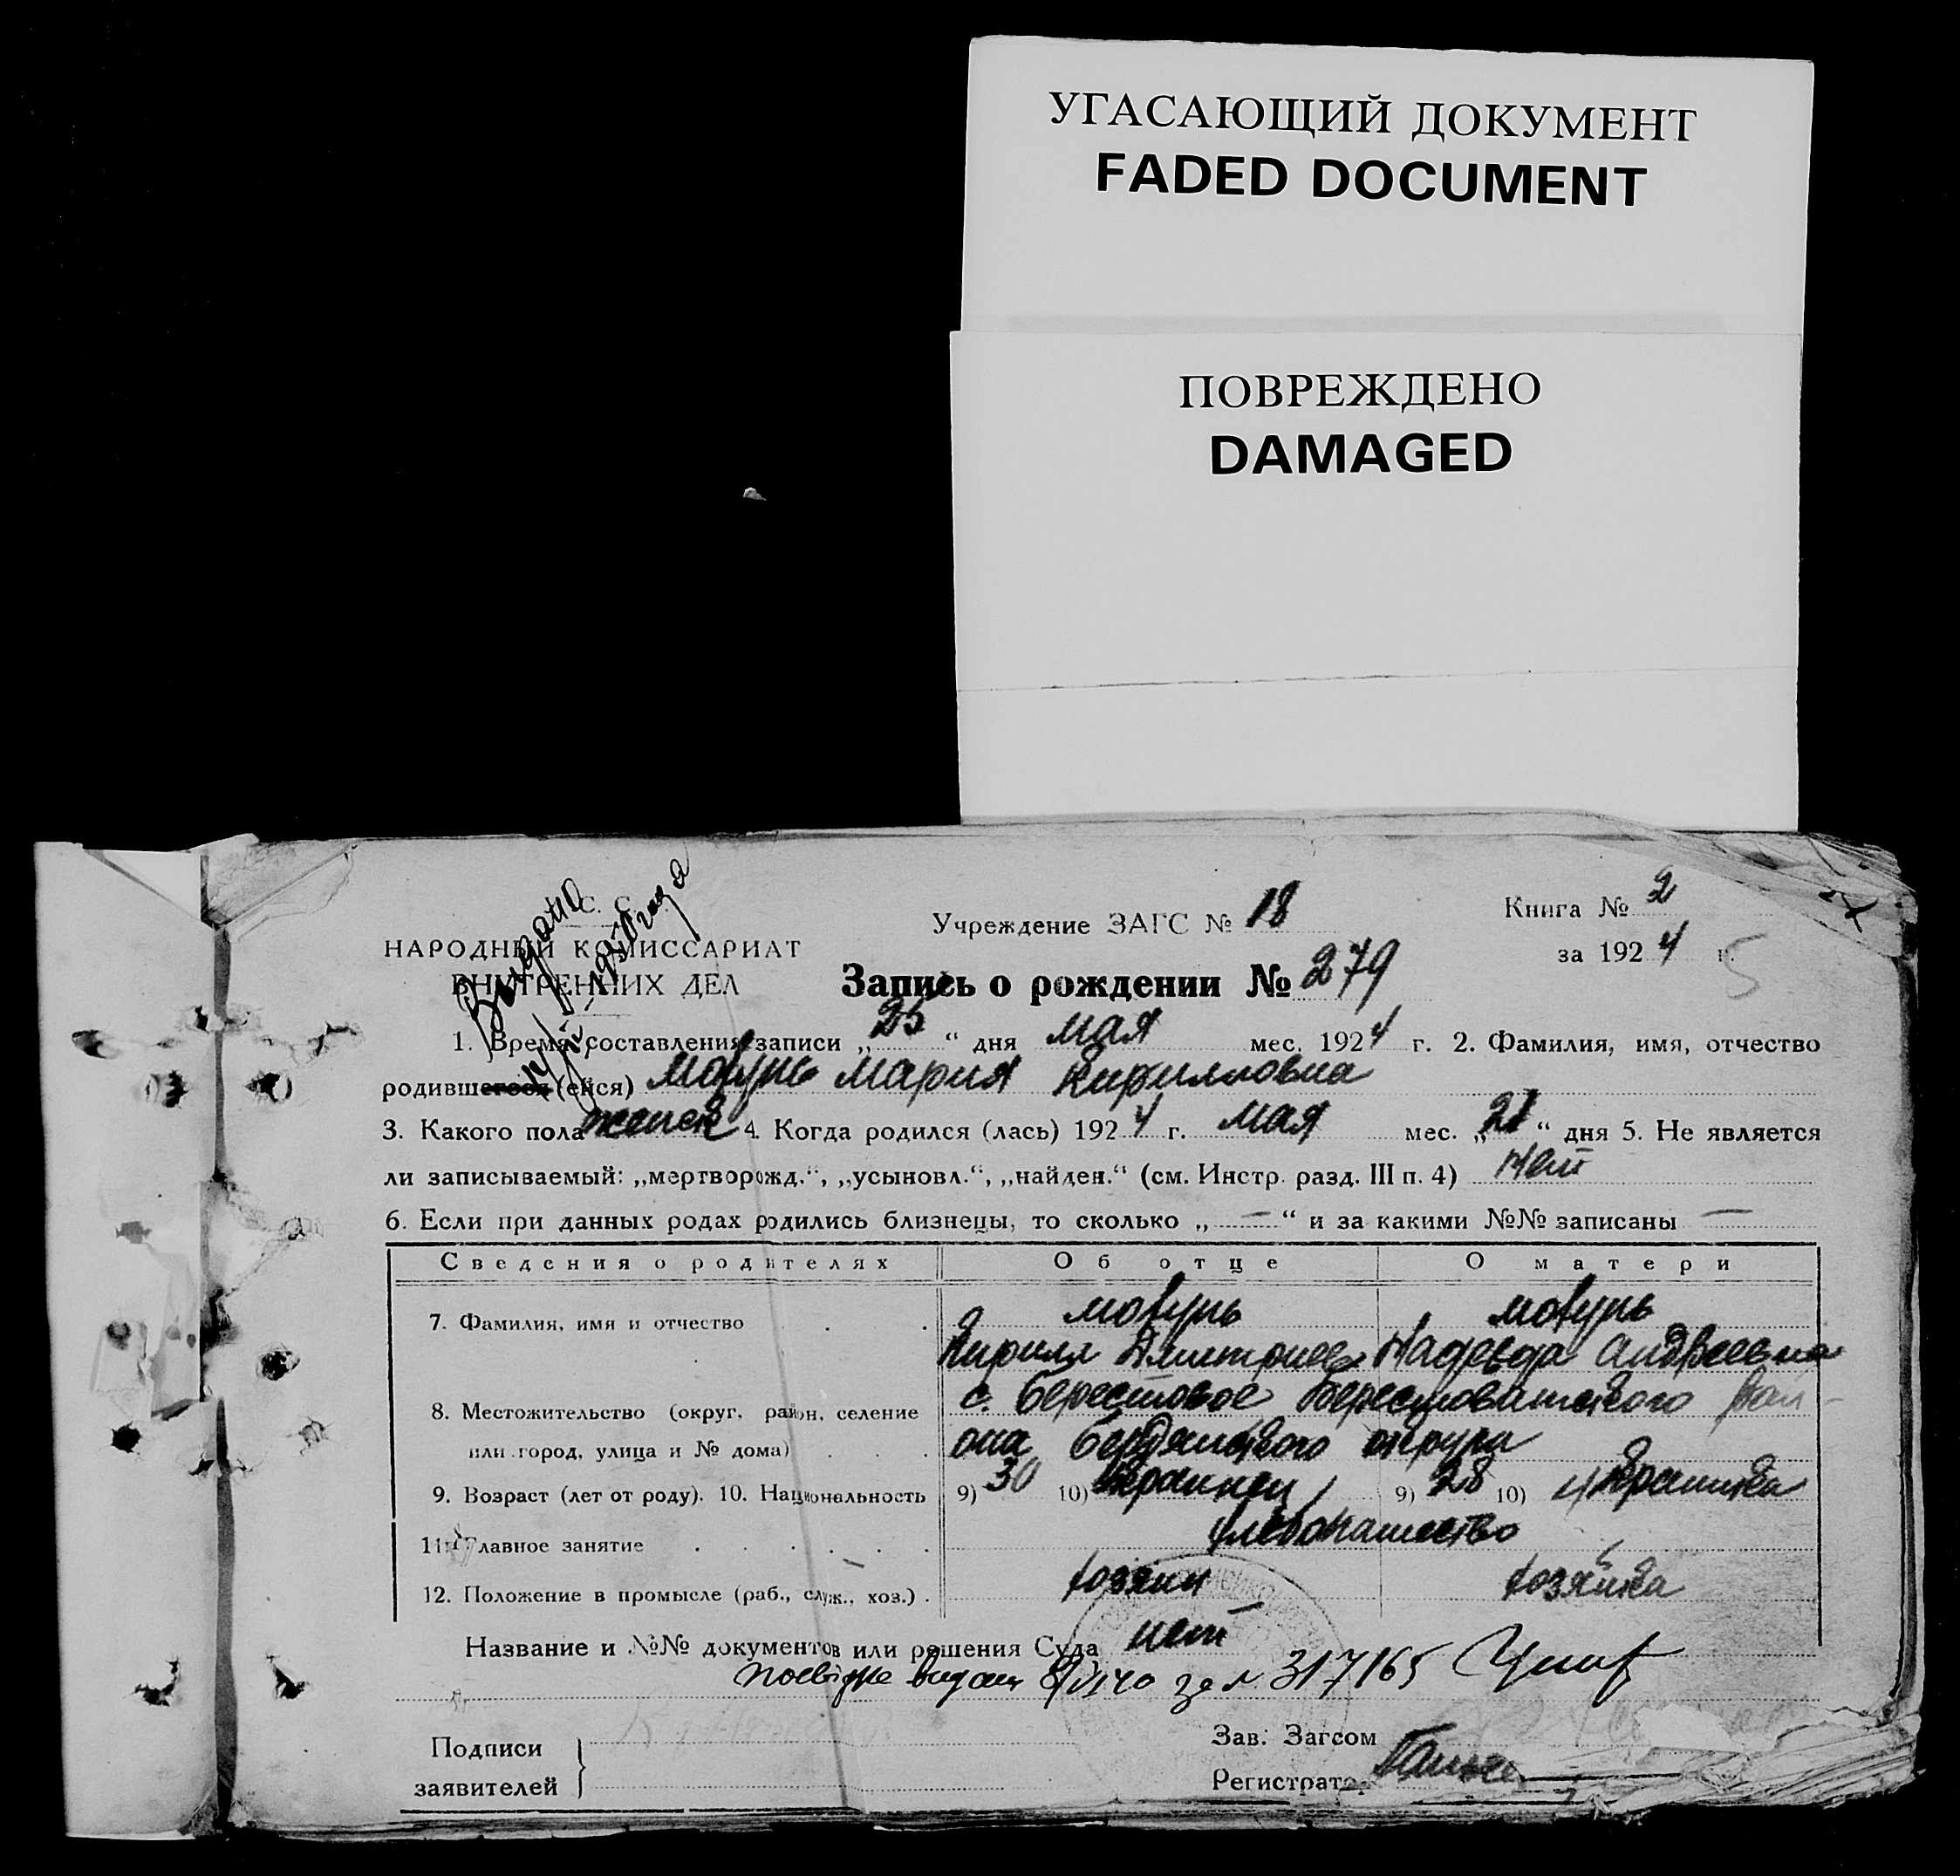 УГАСАЮЩИЙ ДОКУМЕНТ
FADED DOCUMENT
ПОВРЕЖДЕНО
DAMAGED
С. С.
НАРОДНЫЙ КОМИССАРИАТ
ВНУТРЕННИХ ДЕЛ
Учреждение ЗАГС № 18
Книга № 2
за 1924 г.
5
Запись о рождении № 279
1. Время составления записи „25“ дня мая мес. 1924 г. 2. Фамилия, имя, отчество
родившегося (ейся) Мария Кирилловна
3. Какого пола женск 4. Когда родился (лась) 1924 г. мая мес. „21“ дня 5. Не является
ли записываемый: „мертворожд.“, „усыновл.“, „найден.“ (см. Инстр. разд. III п. 4) нет
6. Если при данных родах родились близнецы, то сколько „—“ и за какими №№ записаны —
Сведения о родителях Об отце О матери
7. Фамилия, имя и отчество
Кирилл Дмитриев Надежда Андреевна
8. Местожительство (округ, район, селение
или город, улица и № дома)
с. Берестовое Берестоватского рай-
она Бердянского округа
9. Возраст (лет от роду). 10. Национальность 9) 30 10) Украинец 9) 28 10) украинка
11. Главное занятие хлебопашество
12. Положение в промысле (раб., служ., хоз.) хозяин хозяйка
Название и №№ документов или решения Суда нет
за № 317165
Подписи
заявителей
Зав. Загсом
Регистратор